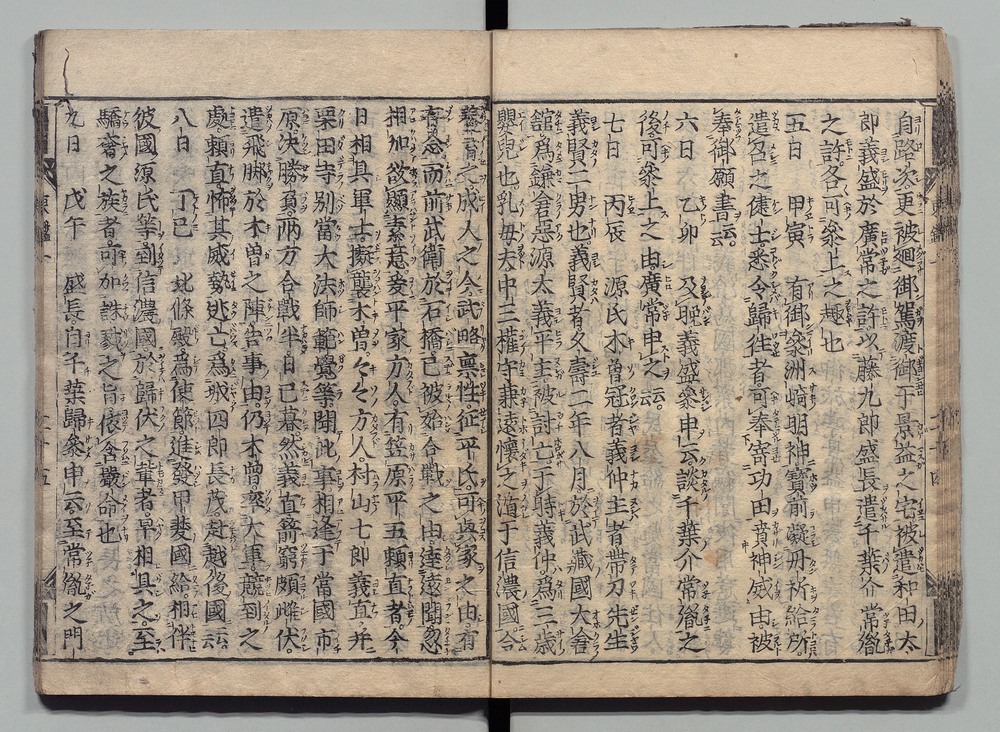 自路次更被廻御駕渡御于景益之宅被遣和田太
郎義盛於廣常之許以藤九郎盛長遣千葉介常胤
之許各可參上之趣也
五日　甲寅　有御參洲崎明神寶前凝丹祈給所
遣召之健士悉令歸往者可奉寄功田賁神威由被
奉御願書云云
六日　乙卯　及晚義盛參申云談千葉介常胤之
後可參上之由廣常申之云云
七日　丙辰　源氏木曾冠者義仲主者帶刀先生
義賢二男也義賢者久壽二年八月於武藏國大倉
舘爲鎌倉惡源太義平主被討亡于時義仲爲三歲
嬰兒也乳母夫中三權守兼遠懷之遁于信濃國令
養育之成人之今武略禀性征平氏可興家之由有
存念而前武衛於石橋已被始合戰之由達遠聞忽
相加欲顯素意爰平家方人有笠原平五賴直者今
日相具軍士擬襲木曾々々方人村山七郎義直并
栗田寺別當大法師範覺等聞此事相逢于當國市
原決勝負兩方合戰半日已暮然義直箭窮頗雌伏
遣飛脚於木曾之陣告事由仍木曾率大軍競到之
處賴直怖其威勢逃亡爲城四郎長茂赴越後國云云
八日　丁巳　北條殿爲使節進發甲斐國給相伴
彼國源氏等到信濃國於歸伏之輩者早相具之至
驕奢之族者可加誅戮之旨依含嚴命也
九日　戊午　盛長自千葉歸參申云至常胤之門